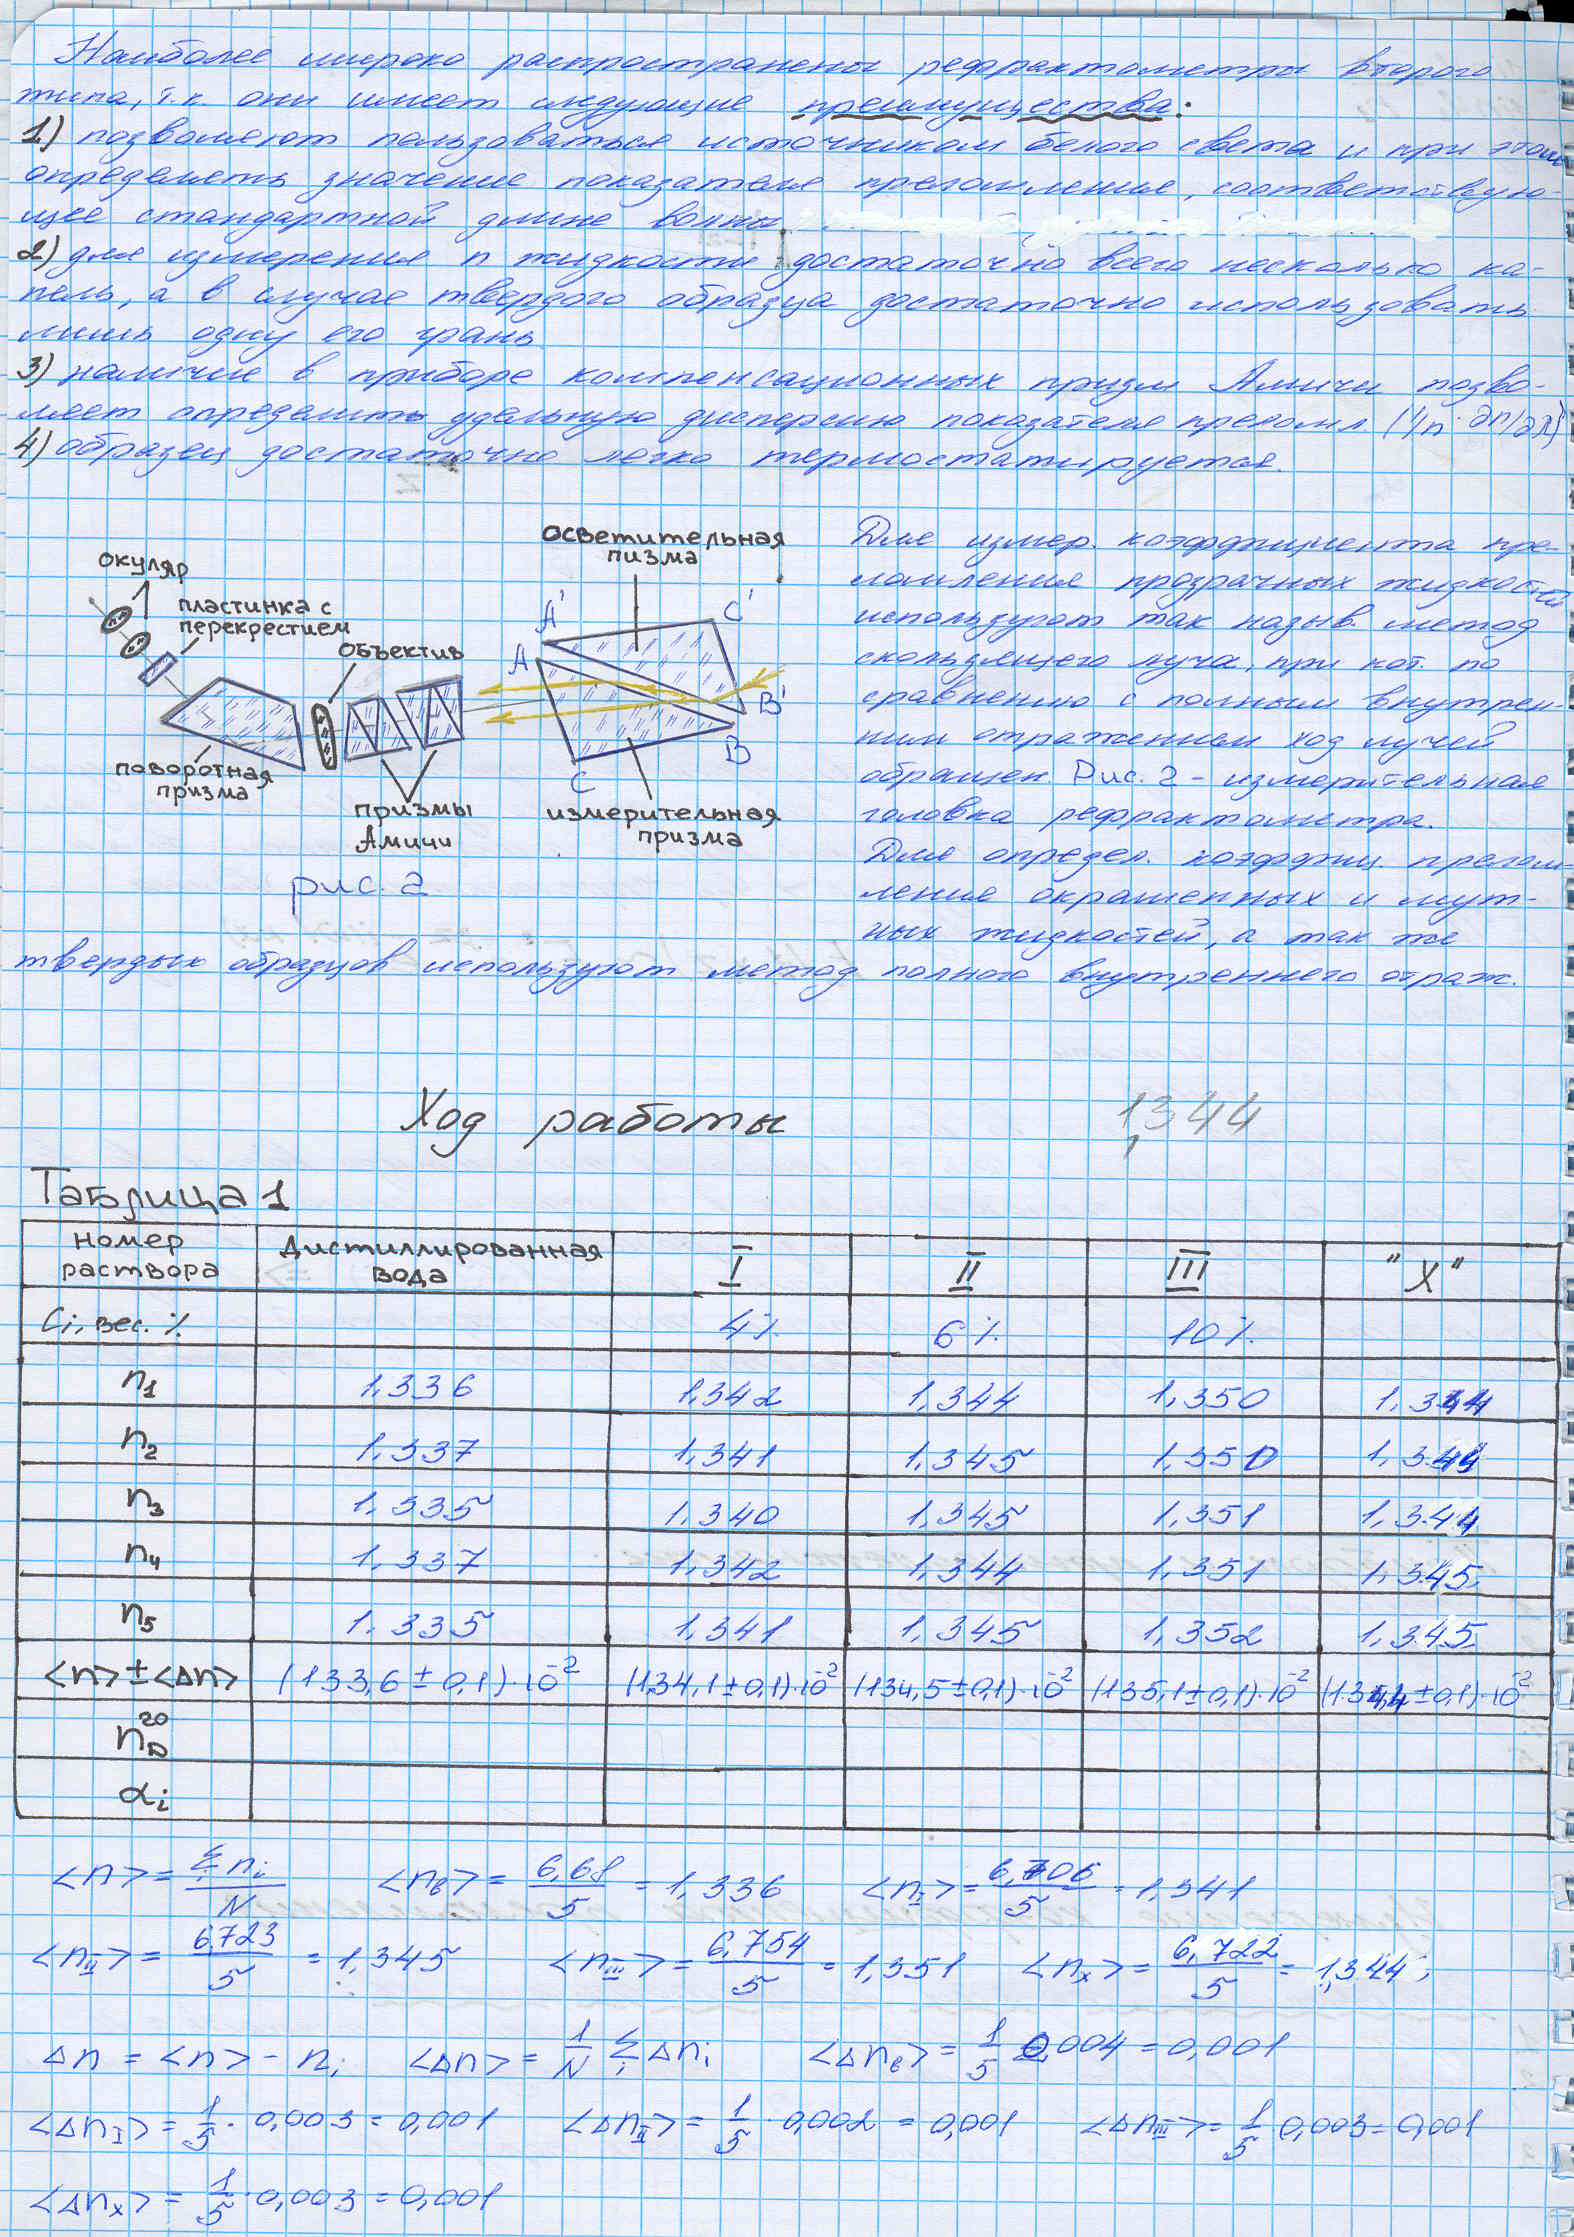 Наиболее широко распространены рефрактометры второго
типа, т.к. они имеют следующие преимущества:
1) позволяют пользоваться источником белого света и при этом
определять значение показателя преломления, соответствую-
щее стандартной длине волны.
2) для измерения n жидкости достаточно всего несколько ка-
пель, а в случае твердого образца достаточно использовать
лишь одну его грань
3) наличие в приборе компенсационных призм Амичи позво-
ляет определить удельную дисперсию показателя преломл. (1/n · ∂n/∂λ)
4) образец достаточно легко термостатируется.
осветительная
пизма
окуляр
пластинка с
перекрестием
объектив
A'
C'
A
B'
B
C
поворотная
призма
призмы
Амичи
измерительная
призма
рис. 2
Для измер. коэффициента пре-
ломления прозрачных жидкостей
используют так назыв. метод
скользящего луча, при кот. по
сравнению с полным внутрен-
ним отражением ход лучей
обращен. Рис. 2 - измерительная
головка рефрактометра.
Для определ. коэффиц. прелом-
ления окрашенных и мут-
ных жидкостей, а так же
твердых образцов используют метод полного внутреннего отраж.
Ход работы
1,344
Таблица 1
номер раствора Дистиллированная вода I II III "X"
Ci, вес. % 4% 6% 10%
n1 1,336 1,342 1,344 1,350 1,344
n2 1,337 1,341 1,345 1,350 1,344
n3 1,335 1,340 1,345 1,351 1,344
n4 1,337 1,342 1,344 1,351 1,345
n5 1,335 1,341 1,345 1,352 1,345
<n> ± <Δn> (133,6 ± 0,1)·10⁻² (134,1 ± 0,1)·10⁻² (134,5 ± 0,1)·10⁻² (135,1 ± 0,1)·10⁻² (134,4 ± 0,1)·10⁻²
n_D^20
αi
<n> = Σ ni / N <nв> = 6,68 / 5 = 1,336 <nI> = 6,706 / 5 = 1,341
<nII> = 6,723 / 5 = 1,345 <nIII> = 6,754 / 5 = 1,351 <nx> = 6,722 / 5 = 1,344;
Δn = <n> - ni <Δn> = 1/N Σi Δni <Δnв> = 1/5 · 0,004 = 0,001
<ΔnI> = 1/5 · 0,003 = 0,001 <ΔnII> = 1/5 · 0,002 = 0,001 <ΔnIII> = 1/5 · 0,003 = 0,001
<Δnx> = 1/5 · 0,003 = 0,001